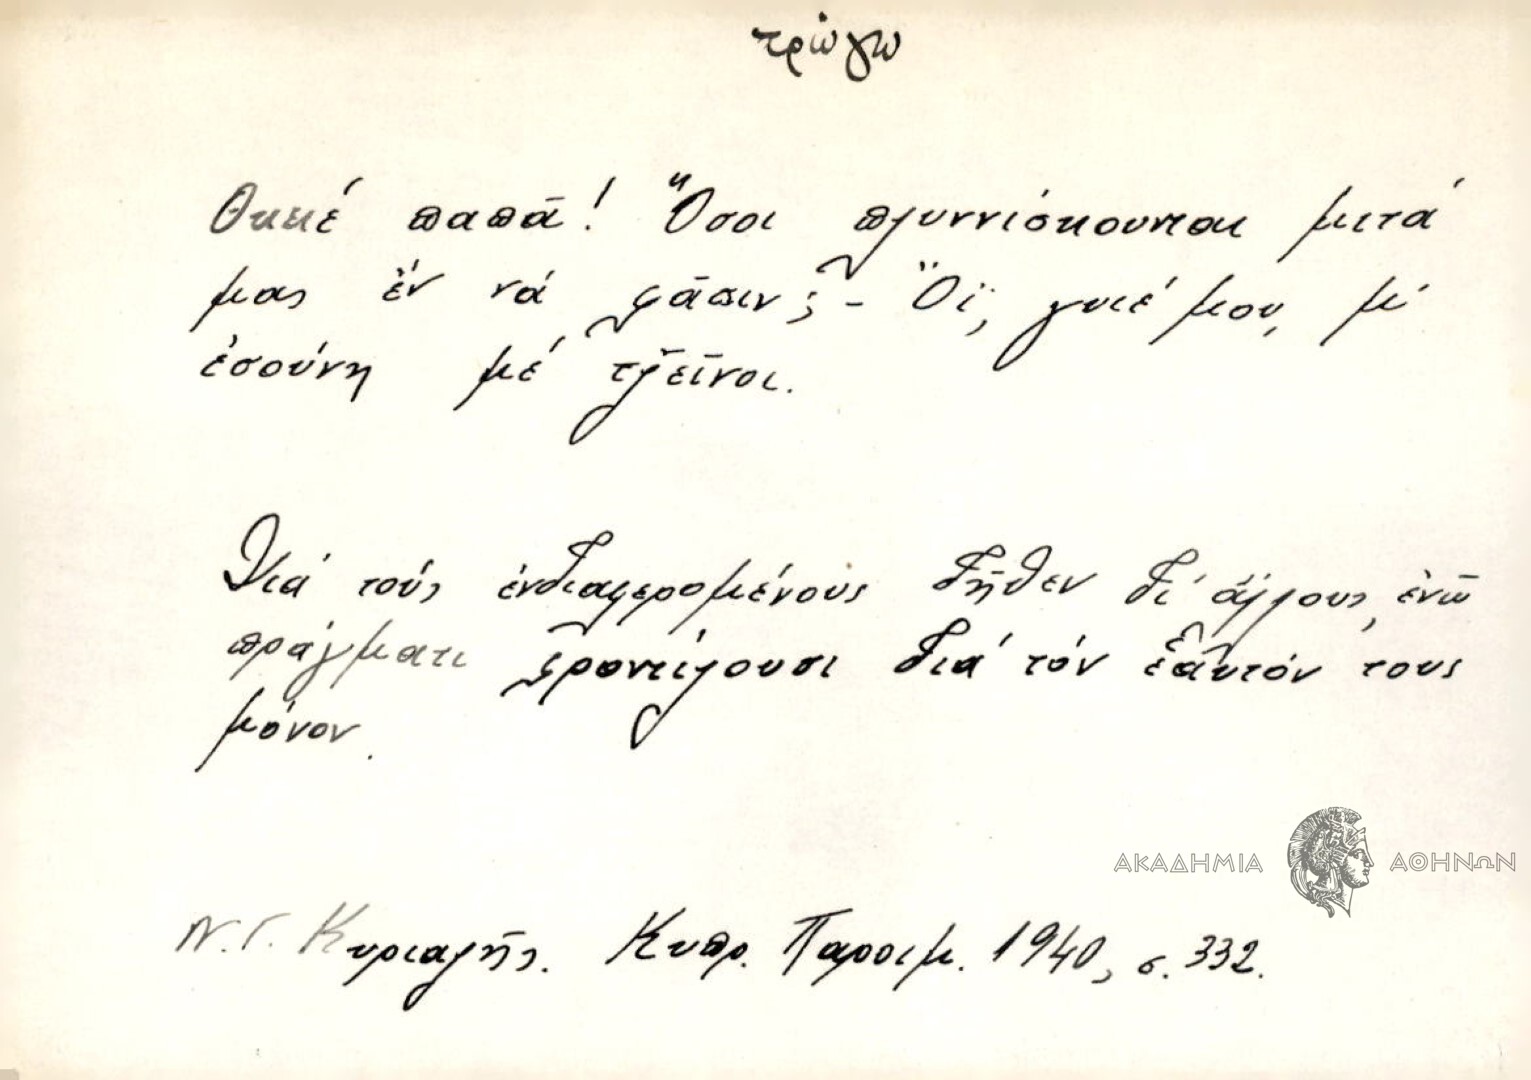 τρώγω
Θκκέ παπᾶ! Ὅσοι πλυννίσκουνται μιτά
μας ἔν νά φᾶσιν; - Ὄϊ, γυιέ μου, μέ
ἐσούνη μέ τζ̌εῖνοι.
Διά τούς ἐνδιαφερομένους δῆθεν δι' ἄλλους, ἐνῶ
πράγματι φροντίζουσι διά τόν ἑαυτόν τους
μόνον.
Ν. Γ. Κυριαζῆς. Κυπρ. Παροιμ. 1940, σ. 332.
ΑΚΑΔΗΜΙΑ ΑΘΗΝΩΝ